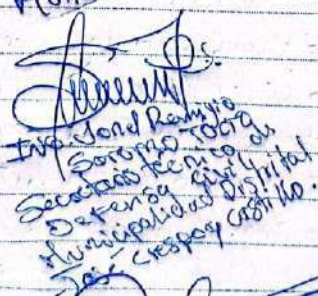 Ing. Jonel Remigio
Soropio Tocto
Secretario Tecnico de
Defensa Civil
Municipalidad Distrital
José Crespo y Castillo.